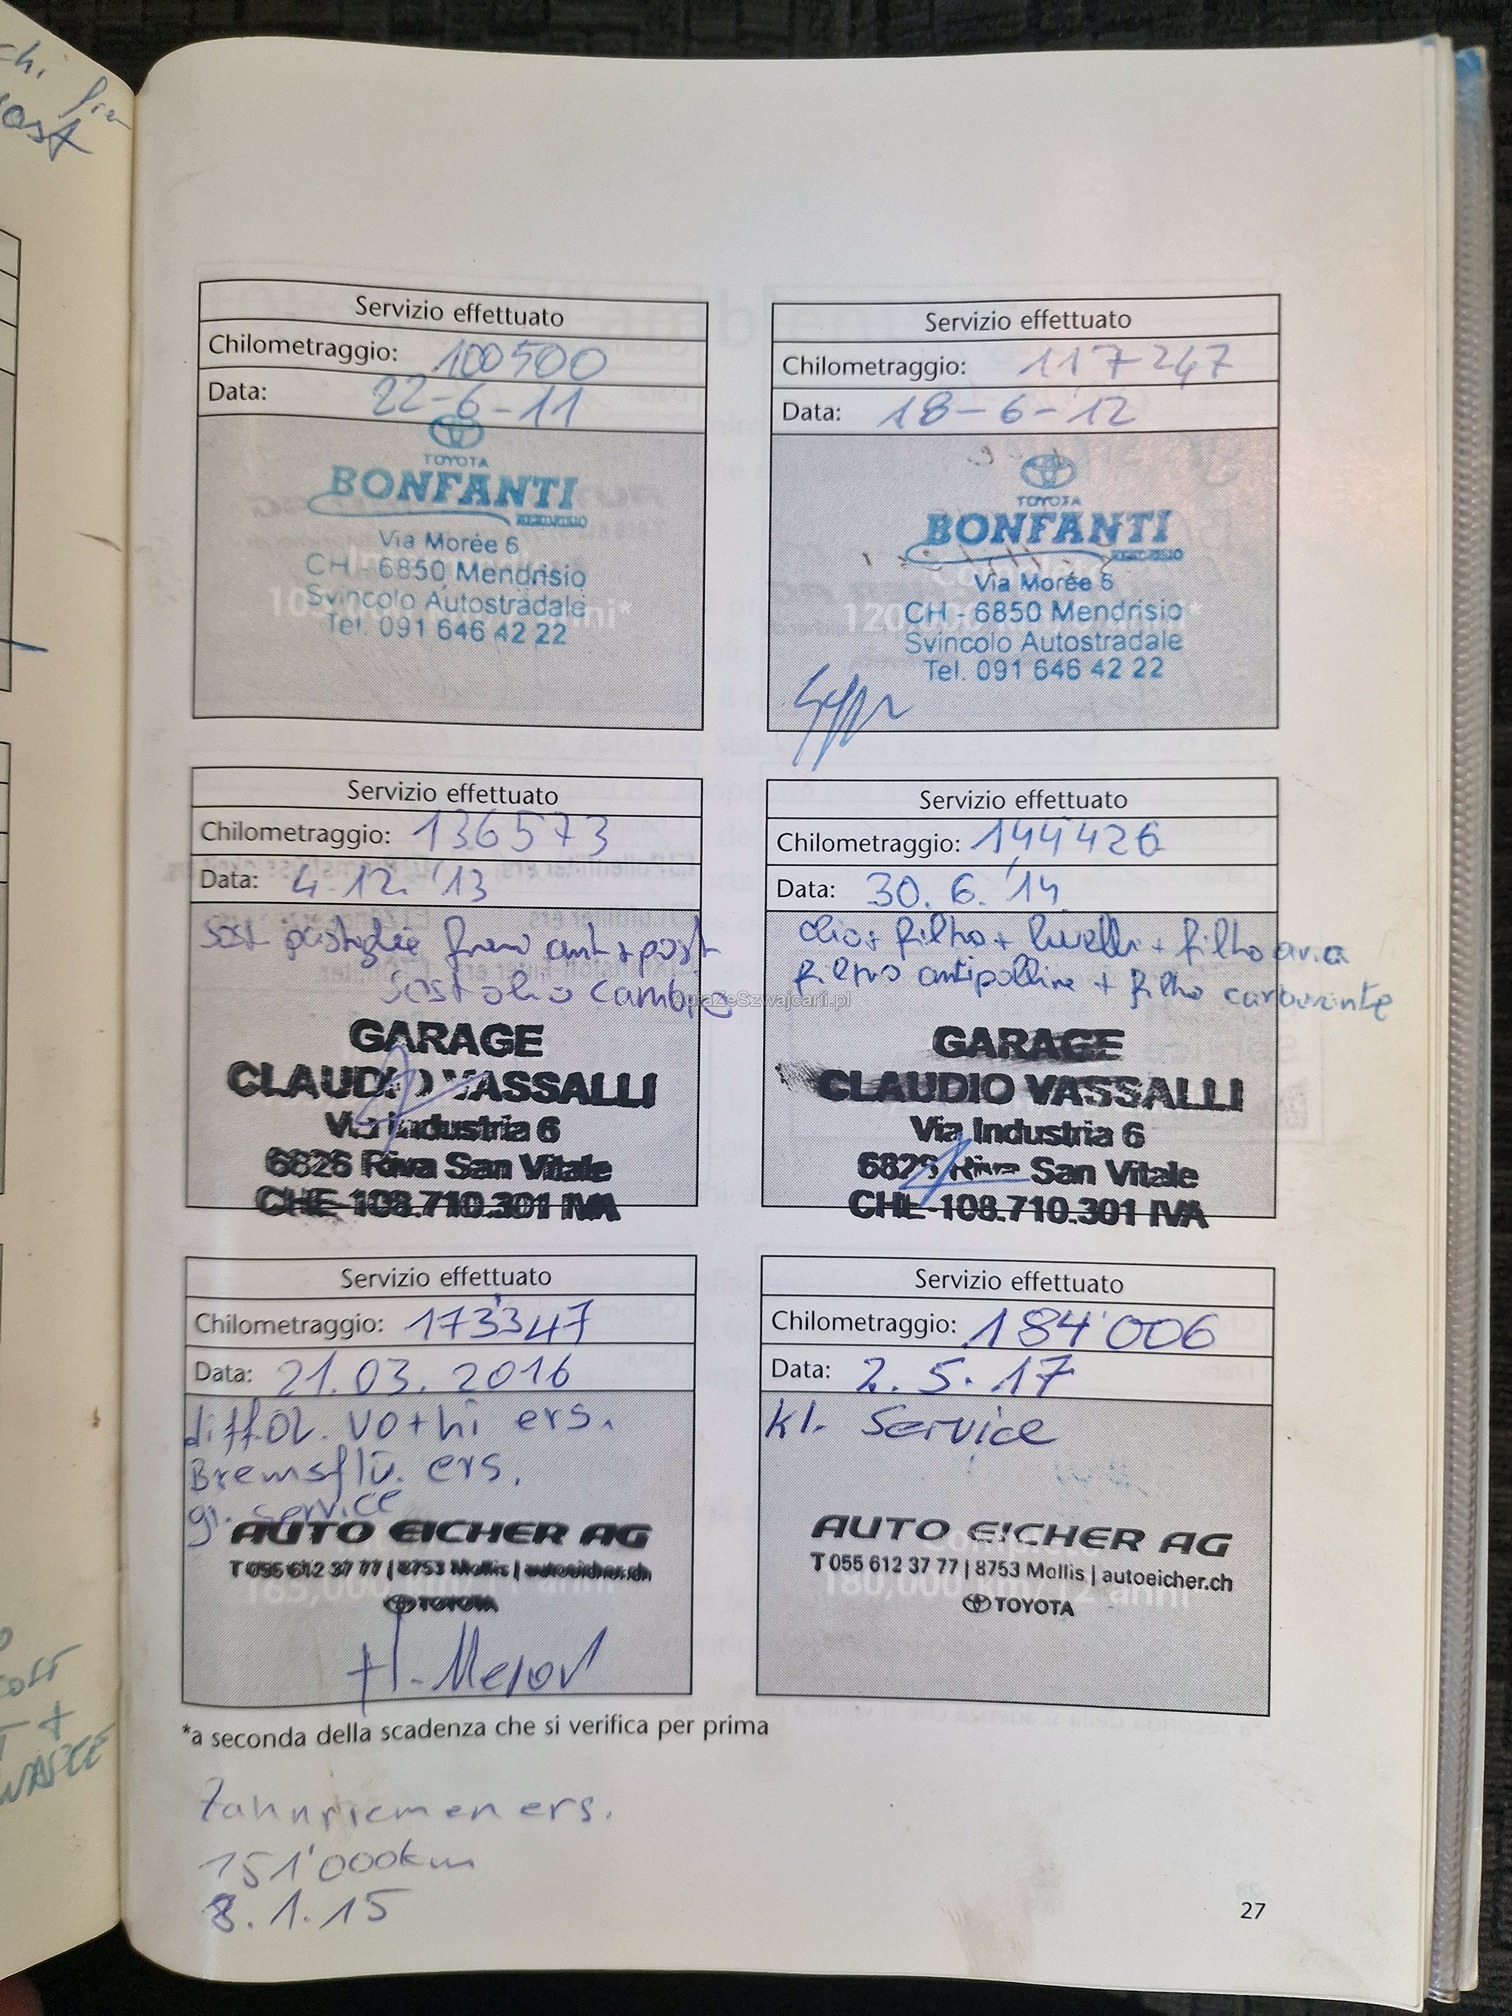 ost
Servizio effettuato
Chilometraggio: 100500
Data: 22-6-11
TOYOTA
BONFANTI
MENDRISIO
Via Morée 6
CH - 6850 Mendrisio
Svincolo Autostradale
Tel. 091 646 42 22
Servizio effettuato
Chilometraggio: 117247
Data: 18-6-12
TOYOTA
BONFANTI
MENDRISIO
Via Morée 6
CH - 6850 Mendrisio
120,000
Svincolo Autostradale
Tel. 091 646 42 22
Servizio effettuato
Chilometraggio: 136573
Data: 4.12.'13
sost pastiglie freno ant + post
sost olio cambio
GARAGE
CLAUDIO VASSALLI
Via Industria 6
6826 Riva San Vitale
CHE-108.710.301 IVA
Servizio effettuato
Chilometraggio: 144'426
Data: 30.6.'14
olio + filtro + livelli + filtro aria
filtro antipolline + filtro carburante
AutazeSzwajcarii.pl
GARAGE
CLAUDIO VASSALLI
Via Industria 6
6826 Riva San Vitale
CHE-108.710.301 IVA
Servizio effettuato
Chilometraggio: 173'347
Data: 21.03.2016
difföl. vo+hi ers.
Bremsflü. ers.
gr. service
AUTO EICHER AG
T 055 612 37 77 | 8753 Mollis | autoeicher.ch
TOYOTA
Servizio effettuato
Chilometraggio: 184'006
Data: 2.5.17
kl. Service
AUTO EICHER AG
T 055 612 37 77 | 8753 Mollis | autoeicher.ch
180,000
TOYOTA
*a seconda della scadenza che si verifica per prima
Zahnriemen ers.
151'000km
8.1.15
27